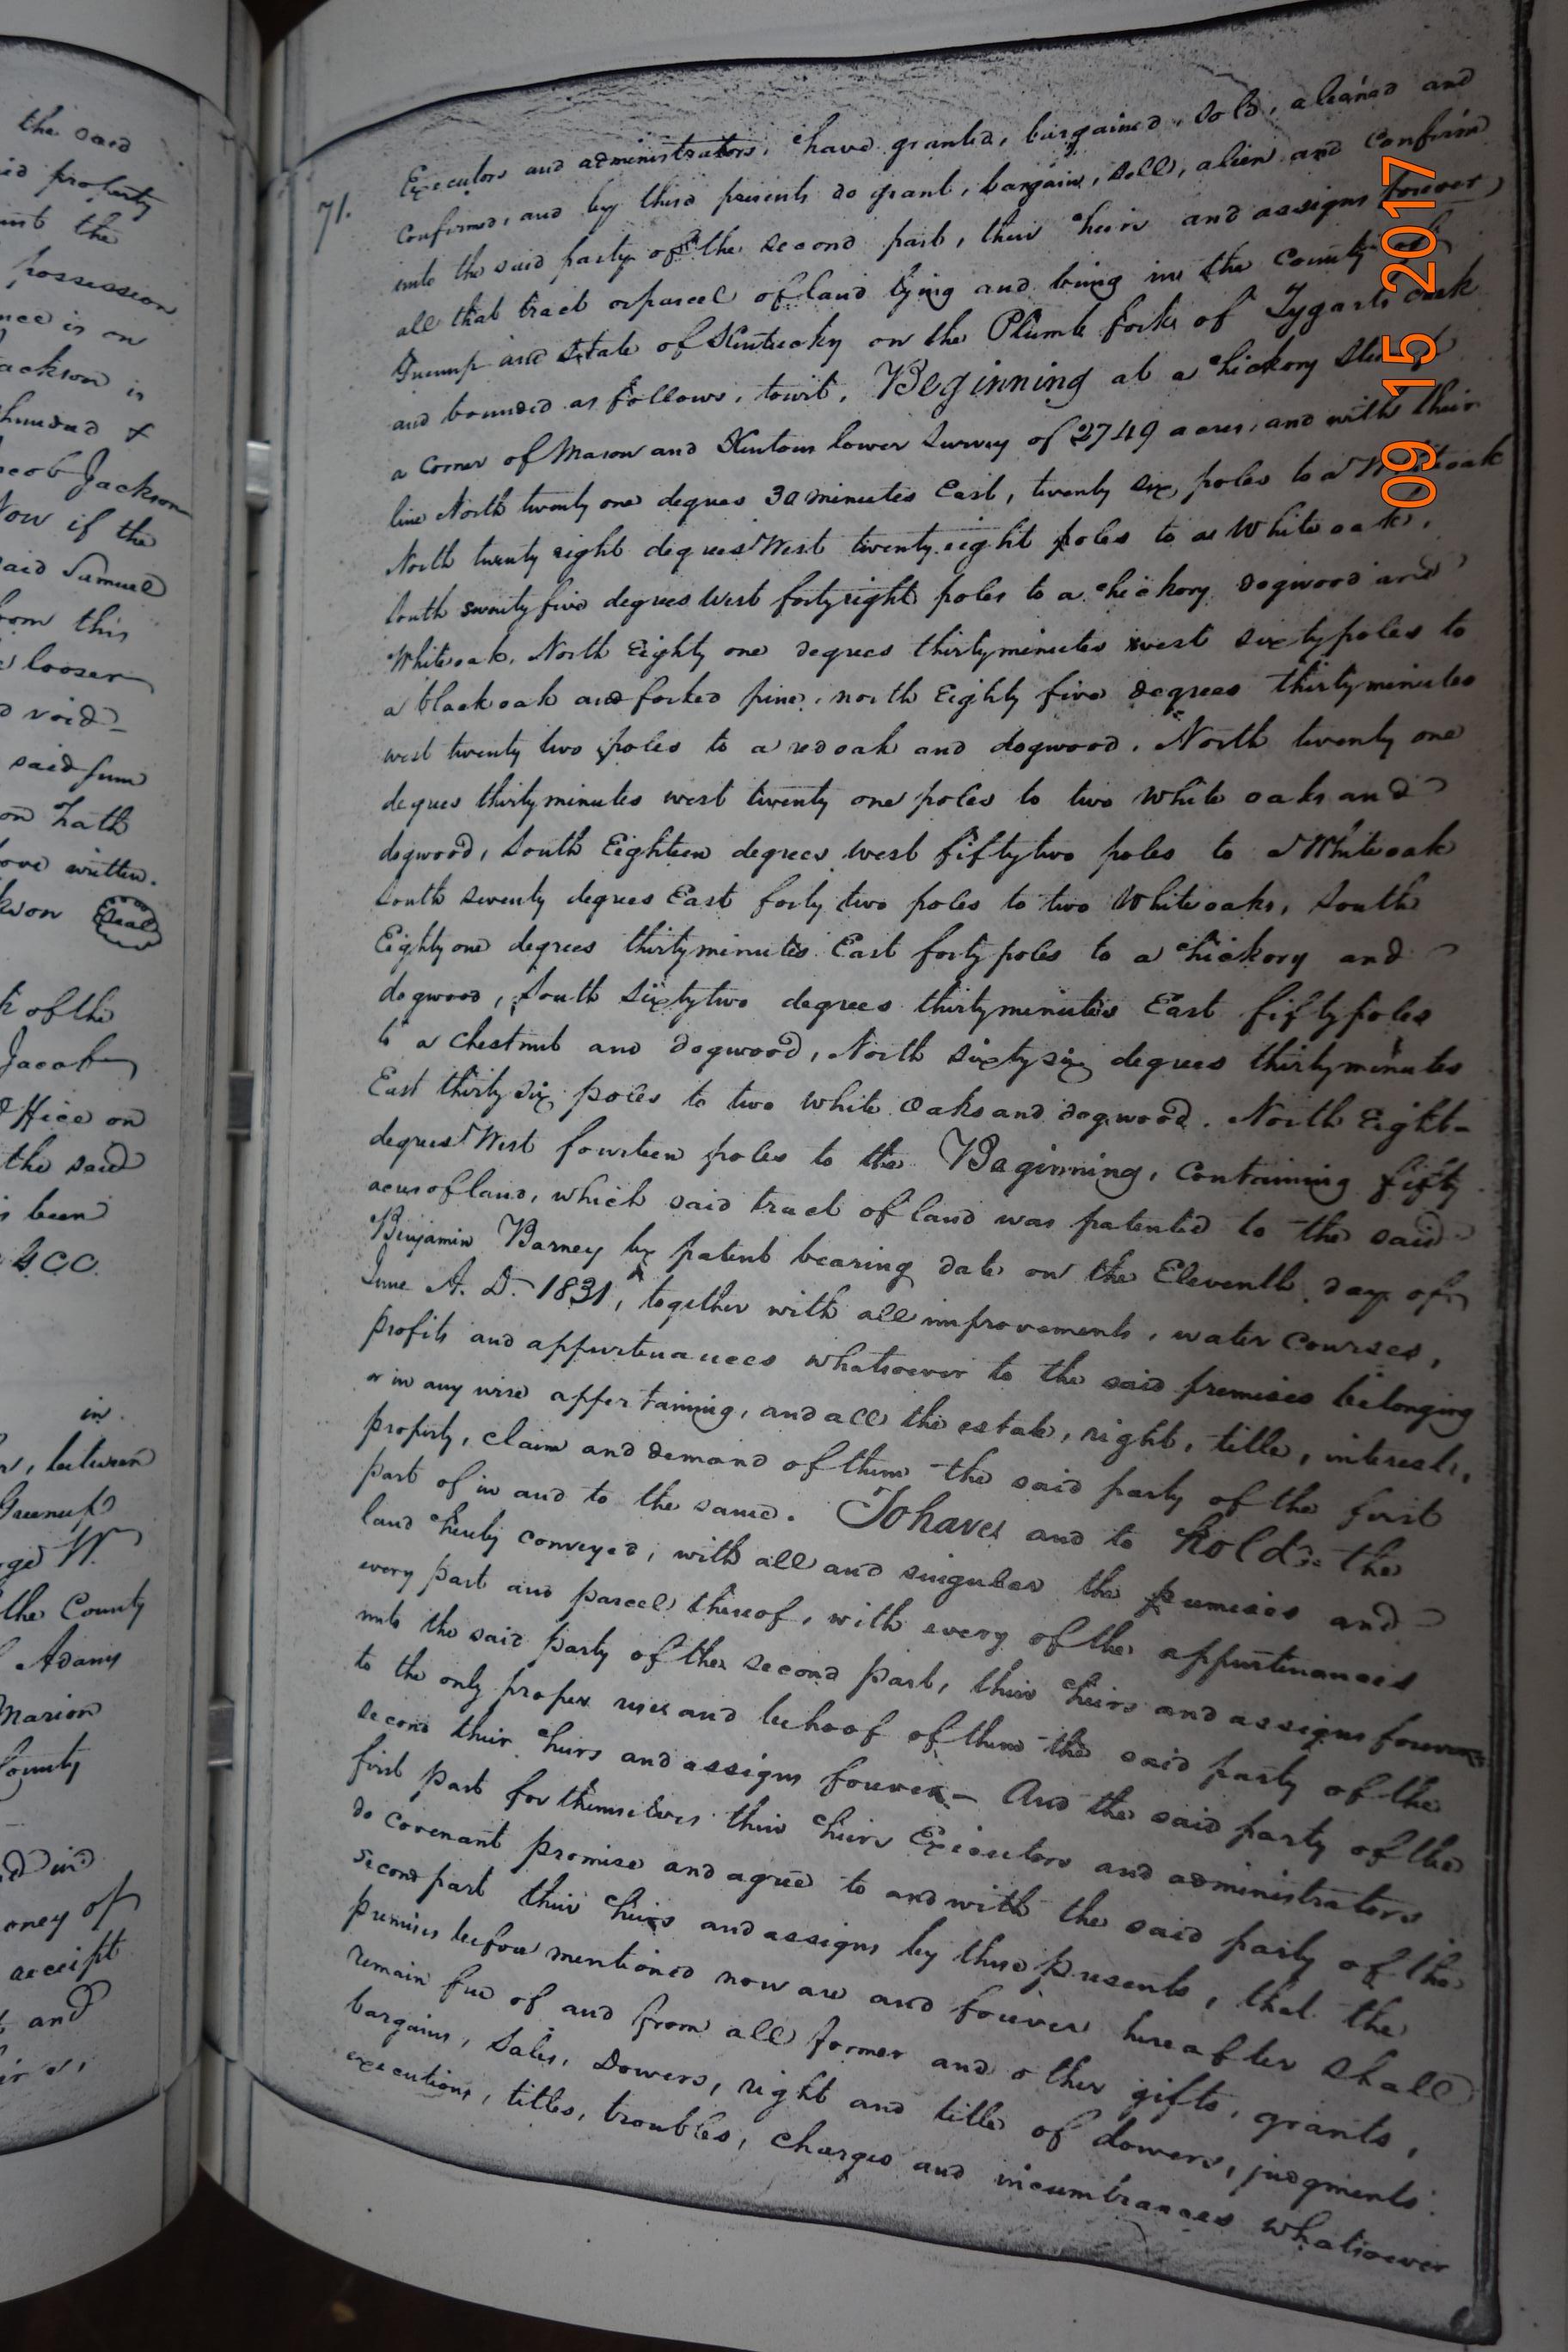 the said
id property
unto the
possession
nce is on
Jackson is
hundred &
Jacob Jackson
Now if the
said Samuel
from this
looser
void
said sum
on hath
above written.
kson Seal
k of the
Jacob
office on
the said
s been
G C C.
in
, between
Greenup
George W.
the County
Adams
Marion
County
ed in
money of
receipt
and
71.
Executors and administrators, have granted, bargained, sold, aliened and
confirmed, and by these presents do grant, bargain, sell, alien and confirm
unto the said party of the second part, their heirs and assigns forever,
all that tract or parcel of land lying and being in the County of
Greenup and State of Kentucky on the Plumb fork of Tygarts creek
and bounded as follows, towit, Beginning at a hickory
a corner of Mason and Kentons lower survey of 2749 acres, and with their
line North twenty one degrees 30 minutes East, twenty six poles to a White oak
North twenty eight degrees West twenty eight poles to a White oak,
South seventy five degrees West forty eight poles to a hickory dogwood and
White oak, North Eighty one degrees thirty minutes west sixty poles to
a black oak and forked pine, north Eighty five degrees thirty minutes
west twenty two poles to a red oak and dogwood, North twenty one
degrees thirty minutes west twenty one poles to two white oaks and
dogwood, South Eighteen degrees west fifty two poles to a White oak
South seventy degrees East forty two poles to two White oaks, South
Eighty one degrees thirty minutes East forty poles to a hickory and
dogwood, South sixty two degrees thirty minutes East fifty poles
to a chestnut and dogwood, North sixty six degrees thirty minutes
East thirty six poles to two white Oaks and dogwood. North Eight
degrees West fourteen poles to the Beginning, containing fifty
acres of land, which said tract of land was patented to the said
Benjamin Barney by patent bearing date on the Eleventh day of
June A. D. 1831, together with all improvements, water courses,
profits and appurtenances whatsoever to the said premises belonging
or in any wise appertaining, and all the estate, right, title, interest,
property, claim and demand of them the said party of the first
part of in and to the same. To have and to hold the
land hereby conveyed, with all and singular the premises and
every part and parcel thereof, with every of the appurtenances
unto the said party of the second part, their heirs and assigns forever
to the only proper use and behoof of them the said party of the
second their heirs and assigns forever - And the said party of the
first part for themselves their heirs Executors and administrators
do covenant promise and agree to and with the said party of the
second part their heirs and assigns by these presents, that the
premises before mentioned now are and forever hereafter shall
remain free of and from all former and other gifts, grants,
bargains, sales, Dowers, right and title of dowers, judgments
executions, titles, troubles, charges and incumbrances whatsoever
09 15 2017